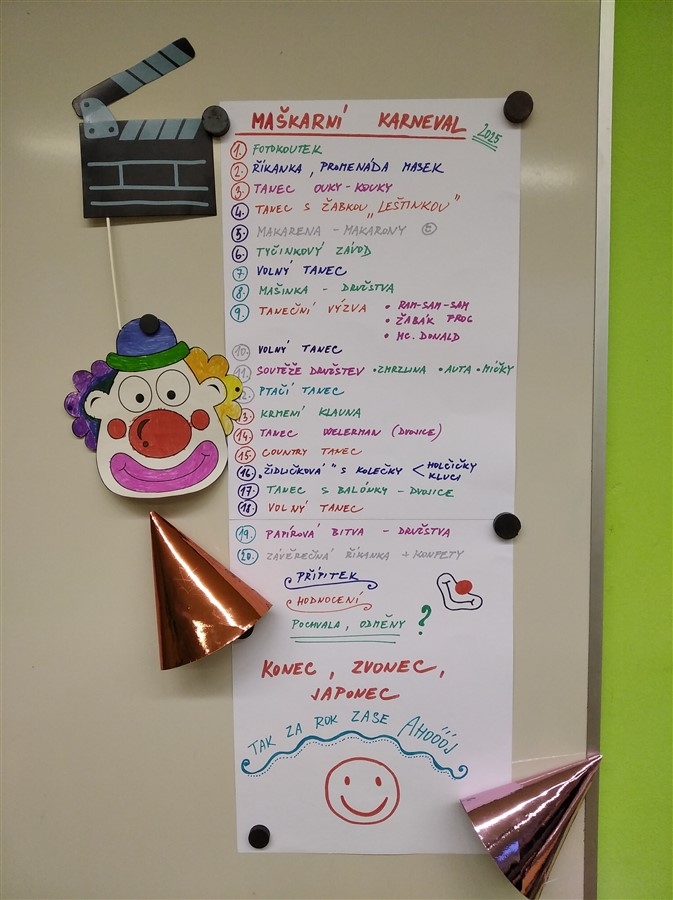 MAŠKARNÍ KARNEVAL 2025
1. FOTOKOUTEK
2. ŘÍKANKA, PROMENÁDA MASEK
3. TANEC OUKY-KOUKY
4. TANEC S ŽABKOU „LEŠTINKOU"
5. MAKARENA - MAKARONY
6. TYČINKOVÝ ZÁVOD
7 VOLNÝ TANEC
8. MAŠINKA - DRUŽSTVA
9. TANEČNÍ VÝZVA • RAM-SAM-SAM
• ŽABÁK PROG
• MC. DONALD
10. VOLNÝ TANEC
11. SOUTĚŽE DRUŽSTEV • ZMRZLINA • AUTA • MÍČKY
12. PTAČÍ TANEC
13. KRMENÍ KLAUNA
14. TANEC WELERMAN (DVOJICE)
15. COUNTRY TANEC
16. „ŽIDLIČKOVÁ" S KOLEČKY < HOLČIČKY
KLUCI
17. TANEC S BALÓNKY - DVOJICE
18. VOLNÝ TANEC
19. PAPÍROVÁ BITVA - DRUŽSTVA
20. ZÁVĚREČNÁ ŘÍKANKA + KONFETY
PŘÍPITEK
HODNOCENÍ
POCHVALA, ODMĚNY ?
KONEC, ZVONEC,
JAPONEC
TAK ZA ROK ZASE AHÓÓÓJ